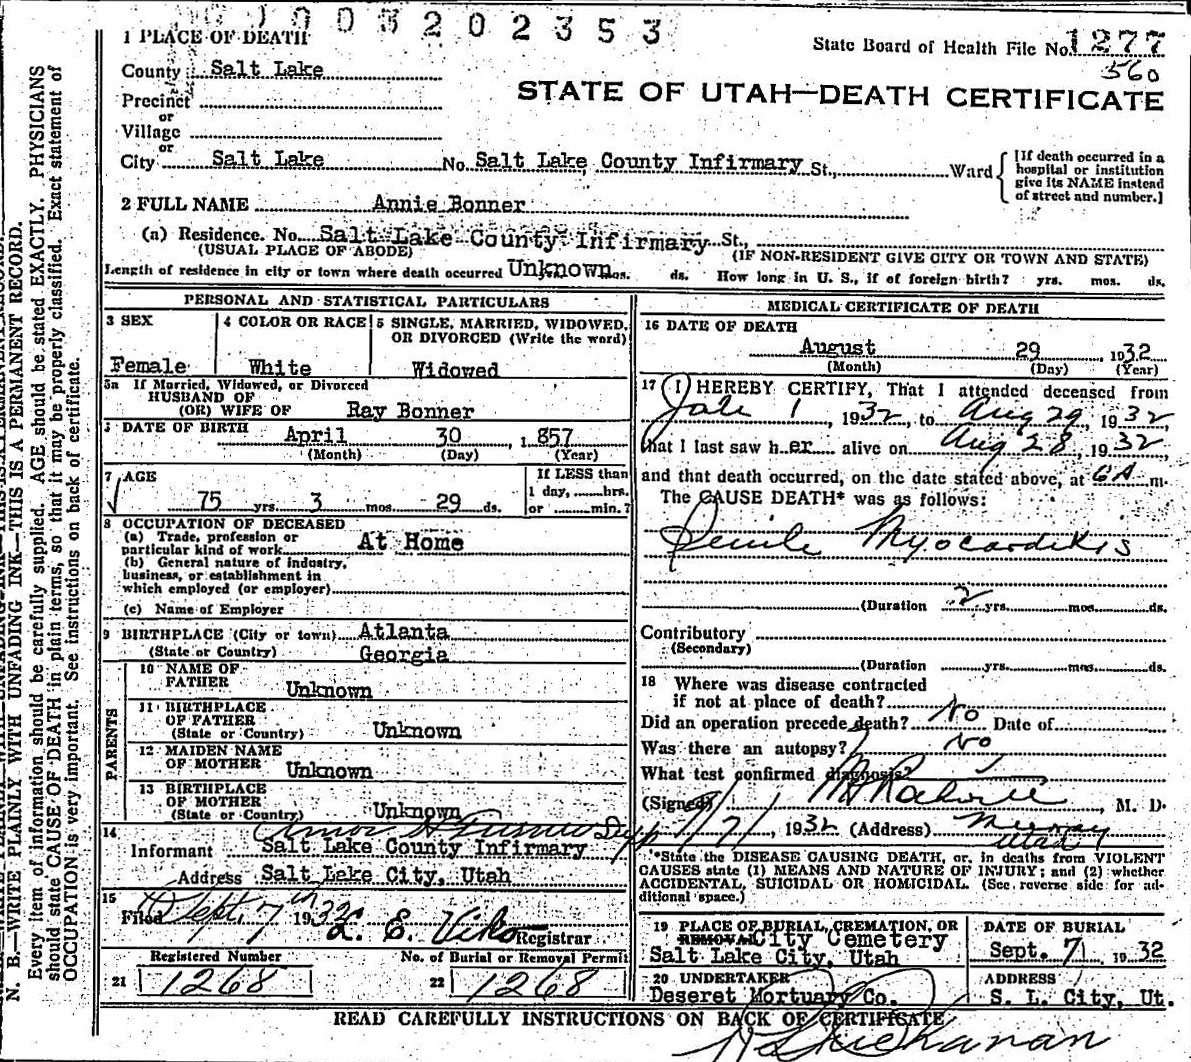 003202353
1 PLACE OF DEATH
State Board of Health File No. 1277
560
County Salt Lake
STATE OF UTAH—DEATH CERTIFICATE
Precinct
or
Village
or
City Salt Lake No. Salt Lake County Infirmary St., Ward
[If death occurred in a
hospital or institution
give its NAME instead
of street and number.]
2 FULL NAME Annie Bonner
(a) Residence. No. Salt Lake County Infirmary St.,
(USUAL PLACE OF ABODE) (IF NON-RESIDENT GIVE CITY OR TOWN AND STATE)
Length of residence in city or town where death occurred Unknown mos. ds. How long in U. S., if of foreign birth? yrs. mos. ds.
PERSONAL AND STATISTICAL PARTICULARS
3 SEX 4 COLOR OR RACE 5 SINGLE, MARRIED, WIDOWED,
OR DIVORCED (Write the word)
Female White Widowed
5a If Married, Widowed, or Divorced
HUSBAND OF
(OR) WIFE OF Ray Bonner
DATE OF BIRTH April 30, 1857
(Month) (Day) (Year)
7 AGE If LESS than
1 day, hrs.
75 yrs. 3 mos. 29 ds. or min.?
8 OCCUPATION OF DECEASED
(a) Trade, profession or
particular kind of work At Home
(b) General nature of industry,
business, or establishment in
which employed (or employer)
(c) Name of Employer
9 BIRTHPLACE (City or town) Atlanta
(State or Country) Georgia
PARENTS
10 NAME OF
FATHER Unknown
11 BIRTHPLACE
OF FATHER
(State or Country) Unknown
12 MAIDEN NAME
OF MOTHER Unknown
13 BIRTHPLACE
OF MOTHER
(State or Country) Unknown
14
Informant Salt Lake County Infirmary
Address Salt Lake City, Utah
15
Filed Sept. 7th 1932 L. E. Viko Registrar
Registered Number No. of Burial or Removal Permit
21 1268 22 1268
MEDICAL CERTIFICATE OF DEATH
16 DATE OF DEATH
August 29 1932
(Month) (Day) (Year)
17 I HEREBY CERTIFY, That I attended deceased from
1, 1932, to Aug 29, 1932,
that I last saw her alive on Aug 28, 1932
and that death occurred, on the date stated above, at 6 A m.
The CAUSE DEATH* was as follows:
Senile Myocarditis
(Duration 2 yrs. mos. ds.
Contributory
(Secondary)
(Duration yrs. mos. ds.
18 Where was disease contracted
if not at place of death?
Did an operation precede death? No Date of
Was there an autopsy? No
What test confirmed diagnosis?
(Signed) , M. D.
9/7/, 1932 (Address) Murray
Utah
*State the DISEASE CAUSING DEATH, or, in deaths from VIOLENT
CAUSES state (1) MEANS AND NATURE OF INJURY; and (2) whether
ACCIDENTAL, SUICIDAL OR HOMICIDAL. (See reverse side for ad-
ditional space.)
19 PLACE OF BURIAL, CREMATION, OR
REMOVAL City Cemetery
Salt Lake City, Utah
DATE OF BURIAL
Sept. 7, 1932
20 UNDERTAKER
Deseret Mortuary Co.
ADDRESS
S. L. City, Ut.
READ CAREFULLY INSTRUCTIONS ON BACK OF CERTIFICATE
N. B.—WRITE PLAINLY WITH UNFADING INK—THIS IS A PERMANENT RECORD.
Every item of information should be carefully supplied. AGE should be stated EXACTLY. PHYSICIANS
should state CAUSE OF DEATH in plain terms, so that it may be properly classified. Exact statement of
OCCUPATION is very important. See instructions on back of certificate.